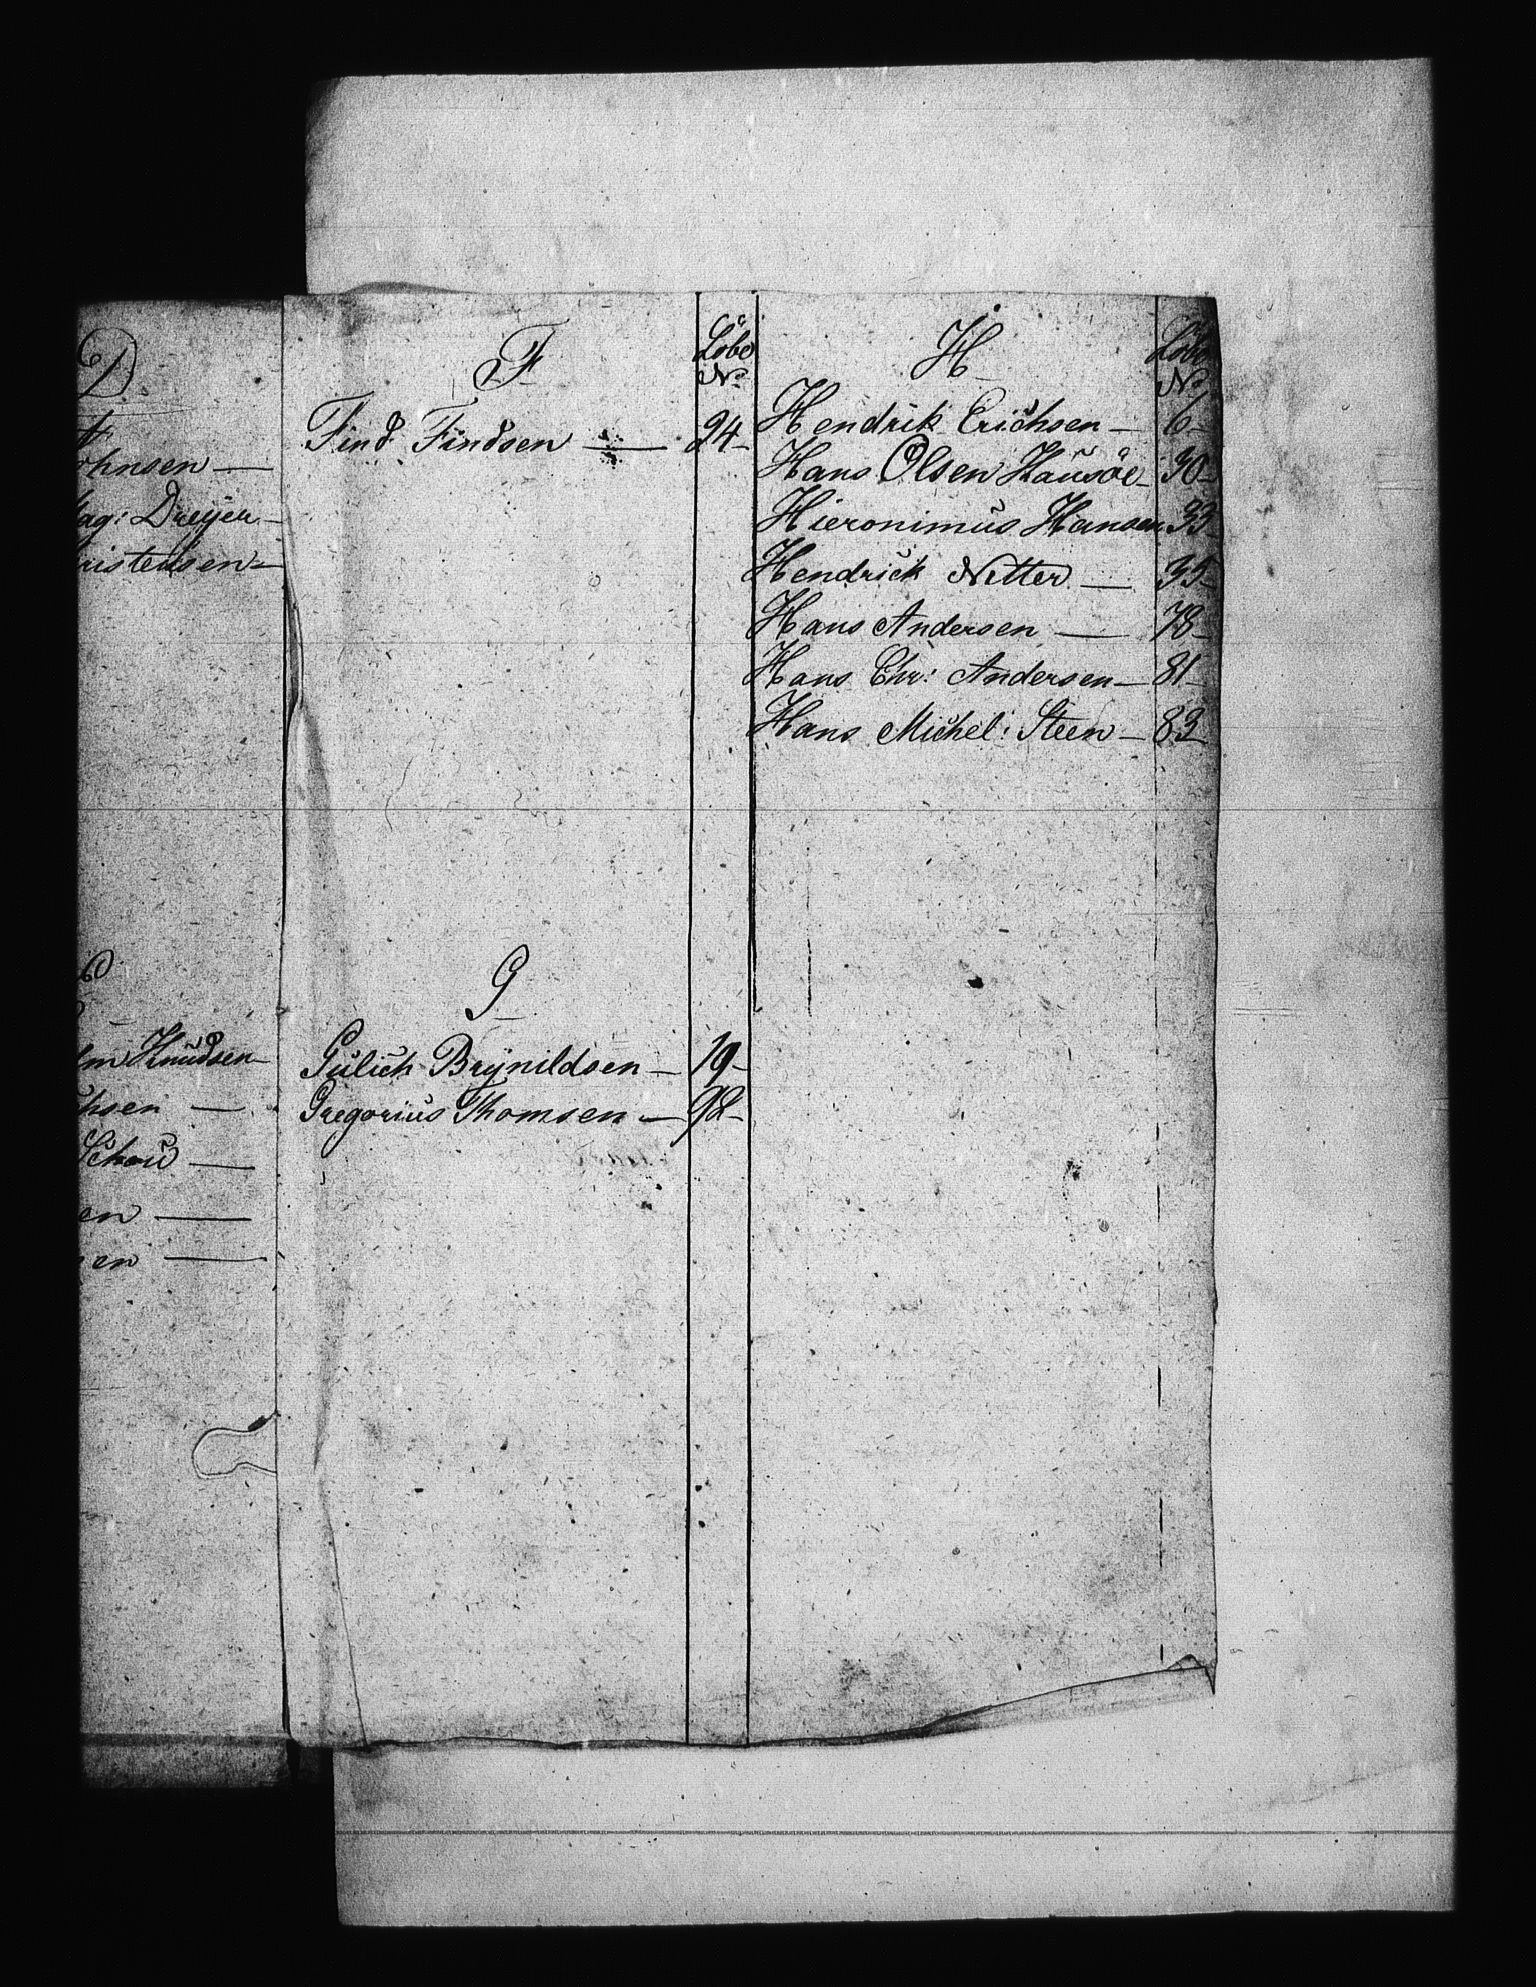 D
ohnsen —
ag: Dreÿer —
ristensen —
lm Knudsen —
chsen —
Schou —
en —
en —
F
Löbe
No
Find Findsen — 24 —
G
Gulich Brÿnildsen — 19 —
Gregorius Thomsen — 92 —
H
Löbe
No
Hendrik Erichsen — 6 —
Hans Olsen Hausöe — 30 —
Hieronimus Hansen 33 —
Hendrick Netter — 35 —
Hans Andersen — 78 —
Hans Chr: Andersen — 81 —
Hans Michel: Steen — 83 —